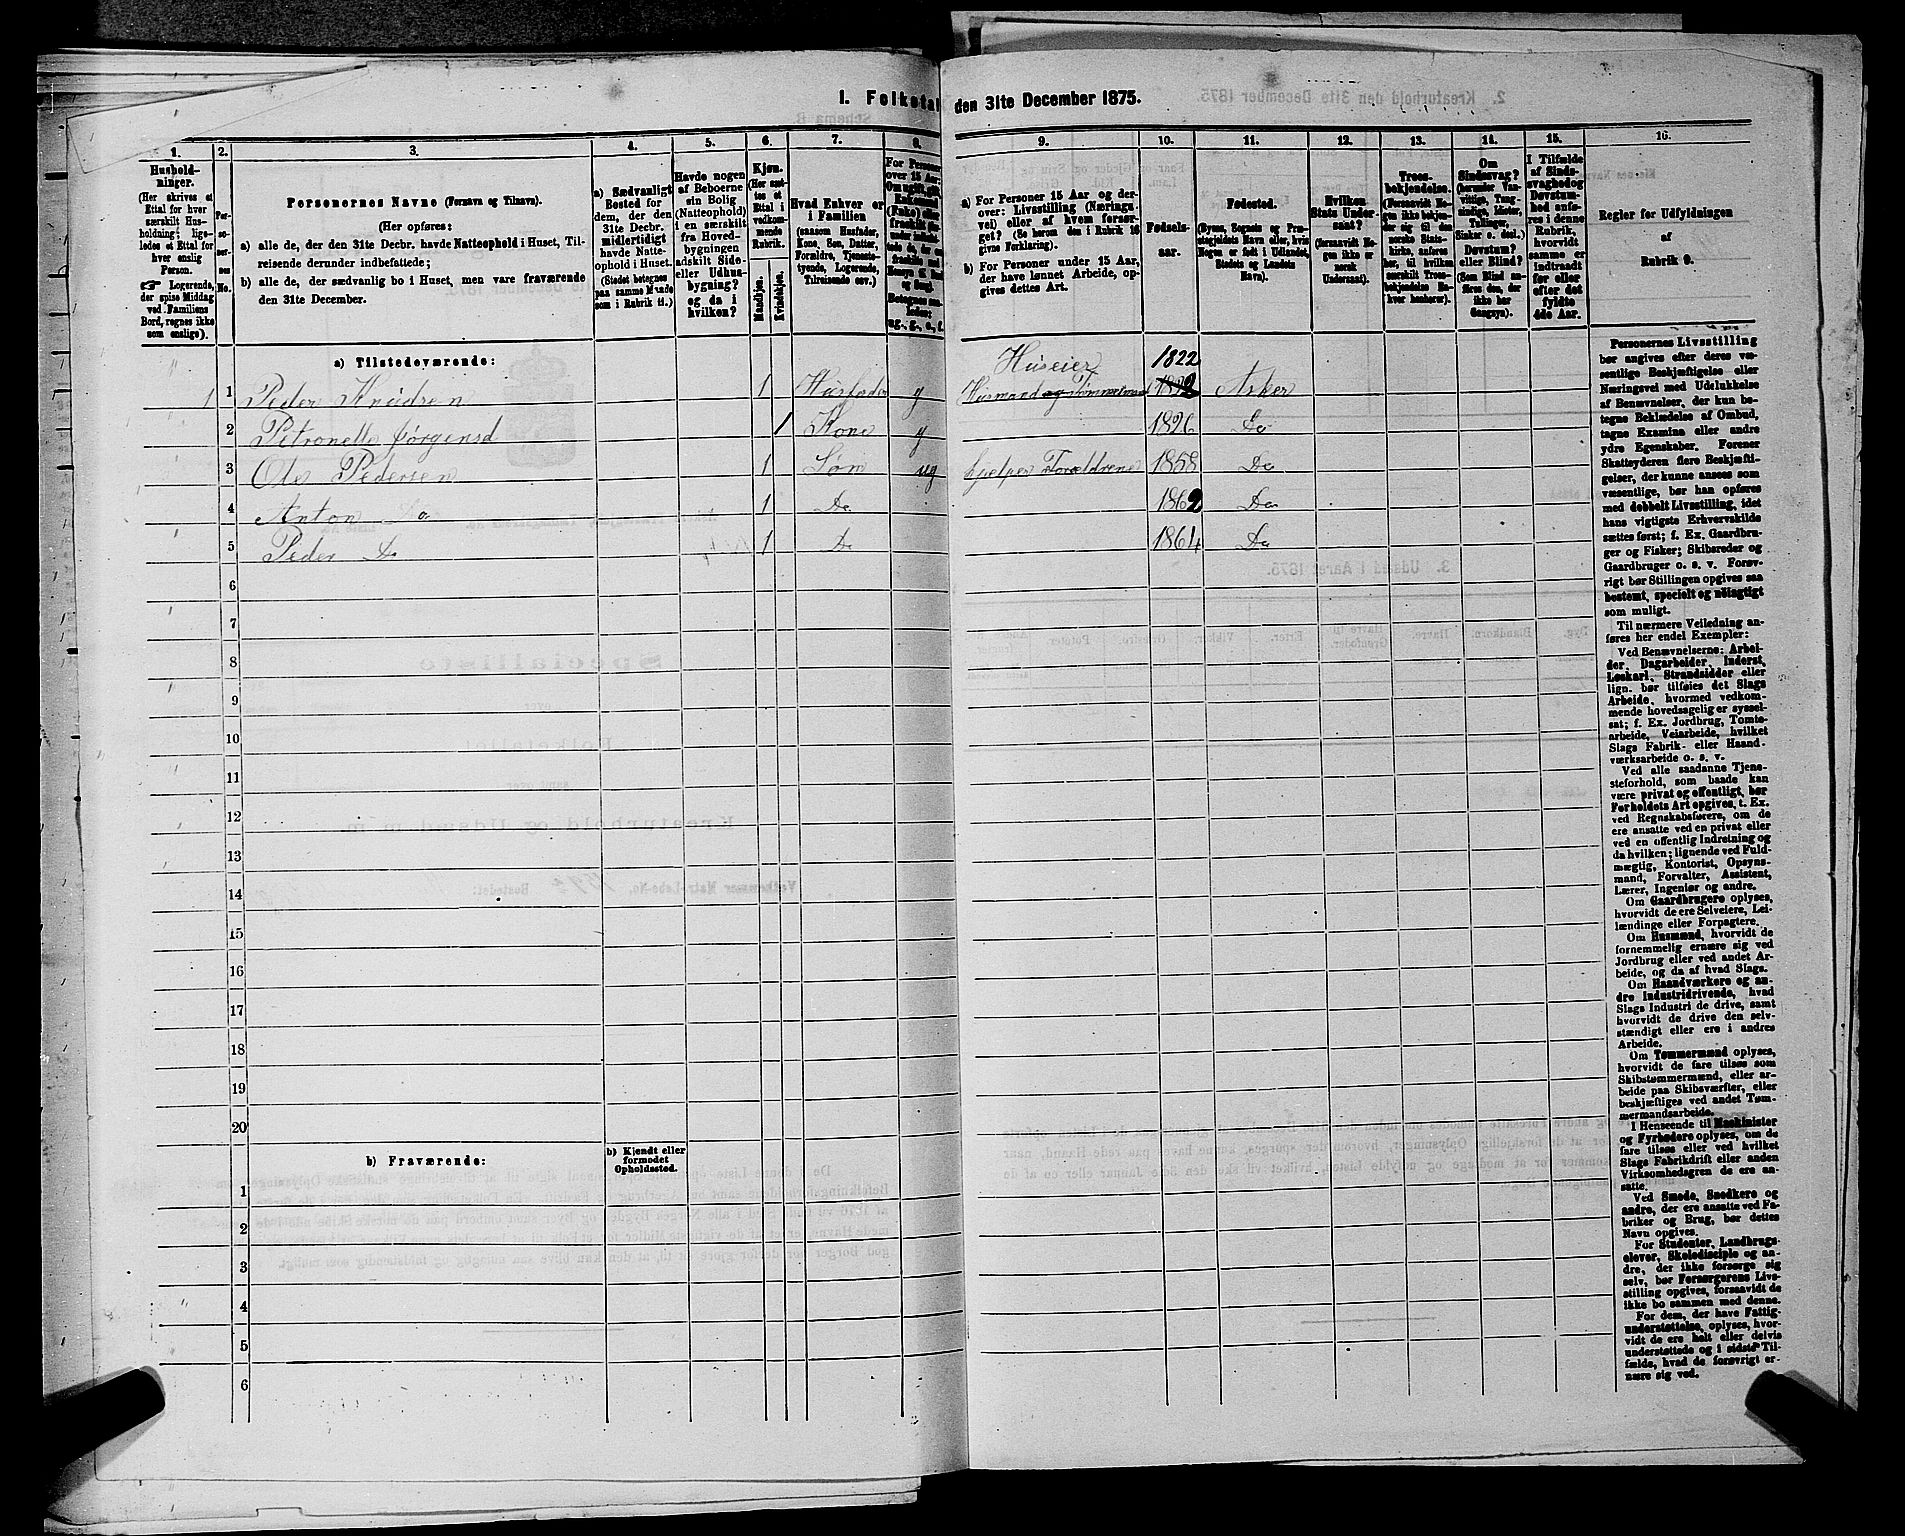 I. Folketal den 31te December 1875.
1. 2. 3. 4. 5. 6. 7. 8. 9. 10. 11. 12. 13. 14. 15. 16.
Hushold-
ninger.
(Her skrives et
Ettal for hver
særskilt Hus-
holdning; lige-
ledes et Ettal for
hver enslig
Person.
☛ Logerende,
der spise Middag
ved Familiens
Bord, regnes ikke
som enslige).
Personernes Navne (Fornavn og Tilnavn).
(Her opføres:
a) alle de, der den 31te Decbr. havde Natteophold i Huset, Til-
reisende derunder indbefattede;
b) alle de, der sædvanlig bo i Huset, men vare fraværende
den 31te December.
a) Sædvanligt
Bosted for
dem, der den
31te Decbr.
midlertidigt
havde Natte-
ophold i Huset.
(Stedet betegnes
paa samme Maade
som i Rubrik 11.)
Havde nogen
af Beboerne
sin Bolig
(Natteophold)
i en særskilt
fra Hoved-
bygningen
adskilt Side-
eller Udhus-
bygning?
og da i
hvilken?
Kjøn.
(Her sæt-
tes et
Ettal i
vedkom-
mende
Rubrik.
Mandkjøn.
Kvindekjøn.
Hvad Enhver er
i Familien
(saasom Husfader,
Kone, Søn, Datter,
Forældre, Tjeneste-
tyende, Logerende,
Tilreisende osv.)
For Personer
over 15 Aar:
a) For Personer 15 Aar og der-
over: Livsstilling (Nærings-
vei) eller af hvem forsør-
get? (Se herom den i Rubrik 16
givne Forklaring).
b) For Personer under 15 Aar,
der have lønnet Arbeide, op-
gives dettes Art.
Fødsels-
aar.
Fødested.
(Byens, Sognets og Præ-
stegjeldets Navn eller, hvis
Nogen er født i Udlandet,
Stedets og Landets
Navn).
Hvilken
Stats Under-
saat?
(forsaavidt No-
gen ikke er
norsk
Undersaat).
Troes-
bekjendelse.
(Forsaavidt No-
gen ikke bekjen-
der sig til den
norske Stats-
kirke, anføres
her, til hvilken
særskilt Troes-
bekjendelse En-
hver henhører).
Om
Sindssvag?
(herunder Van-
vittige, Tung-
sindige, Idioter,
Tullinger,
Sinker o. desl.)
Døvstum?
eller Blind?
(Som Blind an-
føres den, der
ikke har
Gangsyn).
I Tilfælde
af Sinds-
svaghed og
Døvstum-
hed anfø-
res i denne
Rubrik,
hvorvidt
samme er
indtraadt
før eller
efter det
fyldte
4de Aar.
Regler for Udfyldningen
af
Rubrik 9.
a) Tilstedeværende:
Huseier 1822
1 1 Peder Knudsen 1 Husfader g Husmand og Tømmermand 1822 Asker
2 Petronelle Jørgensd 1 Kone g 1826 Do
3 Ole Pedersen 1 Søn ug hjelper Forældrene 1858 Do
4 Anton Do 1 Do 1862 Do
5 Peder Do 1 Do 1864 Do
6
7
8
9
10
11
12
13
14
15
16
17
18
19
20
b) Fraværende:
b) Kjendt eller
formodet
Opholdssted.
1
2
3
4
5
6
Personernes Livsstilling
bør angives efter deres væ-
sentlige Beskjæftigelse eller
Næringsvei med Udelukkelse
af Benævnelser, der kun be-
tegne Beklædelse af Ombud,
tagne Examina eller andre
ydre Egenskaber. Forener
Skatteyderen flere Beskjæfti-
gelser, der kunne ansees som
væsentlige, bør han opføres
med dobbelt Livsstilling, idet
hans vigtigste Erhvervskilde
sættes først; f. Ex. Gaardbru-
ger og Fisker; Skibsreder og
Gaardbruger o. s. v. Forøv-
rigt bør Stillingen opgives saa
bestemt, specielt og nöiagtigt
som muligt.
Til nærmere Veiledning an-
føres her endel Exempler:
Ved Benævnelserne: Arbei-
der, Dagarbeider, Inderst,
Løskarl, Strandsidder eller
lign. bør tilføies det Slags
Arbeide, hvormed vedkom-
mende hovedsagelig er syssel-
sat; f. Ex. Jordbrug, Tomte-
arbeide, Veiarbeide, hvilket
Slags Fabrik- eller Haand-
værksarbeide o. s. v.
Ved alle saadanne Tjene-
steforhold, som baade kan
være privat og offentligt, bør
Forholdets Art opgives, t. Ex.
ved Regnskabsførere, om de
ere ansatte ved en privat eller
ved en offentlig Indretning og
da hvilken; lignende ved Fuld-
mægtig, Kontorist, Opsyns-
mand, Forvalter, Assistent,
Lærer, Ingeniør og andre.
Om Gaardbrugere oplyses,
hvorvidt de ere Selveiere, Lei-
lændinge eller Forpagtere.
Om Husmænd, hvorvidt de
fornemmelig ernære sig ved
Jordbrug eller ved andet Ar-
beide, og da af hvad Slags.
Om Haandværkere og an-
dre Industridrivende, hvad
Slags Industri de drive, samt
hvorvidt de drive den selv-
stændigt eller ere i andres
Arbeide.
Om Tømmermænd oplyses,
hvorvidt de fare tilsøs som
Skibstømmermænd, eller ar-
beide paa Skibsværfter, eller
beskjæftiges ved andet Tøm-
mermandsarbeide.
I Henseende til Maskinister
og Fyrbødere oplyses, om de
fare tilsøs eller ved hvilket
Slags Fabrikdrift eller anden
Virksomhedsgren de ere an-
satte.
Ved Smede, Snedkere og
andre, der ere ansatte ved Fa-
briker og Brug, bør dettes
Navn opgives.
For Studenter, Landbrugs-
elever, Skoledisciple og an-
dre, der ikke forsørge sig
selv, bør Forsørgerens Livs-
stilling opgives, forsaavidt de
ikke bo sammen med denne.
For dem, der have Fattig-
understøttelse, oplyses, hvor-
vidt de ere helt eller delvis
understøttede og i sidste Til-
fælde, hvad de forøvrigt er-
nære sig ved.